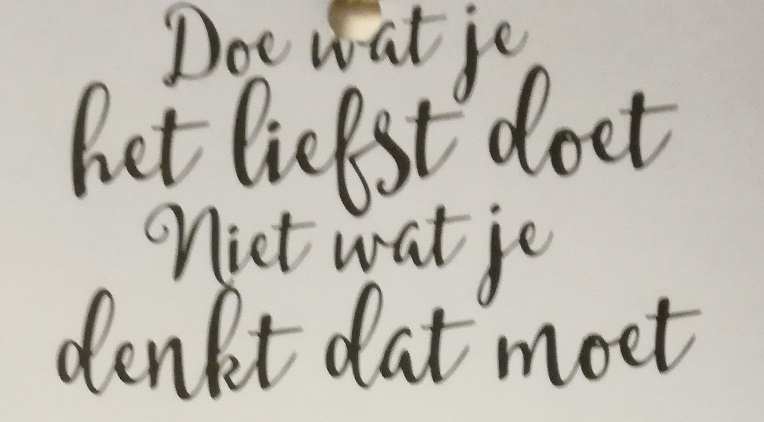 Doe wat je
het liefst doet
Niet wat je
denkt dat moet